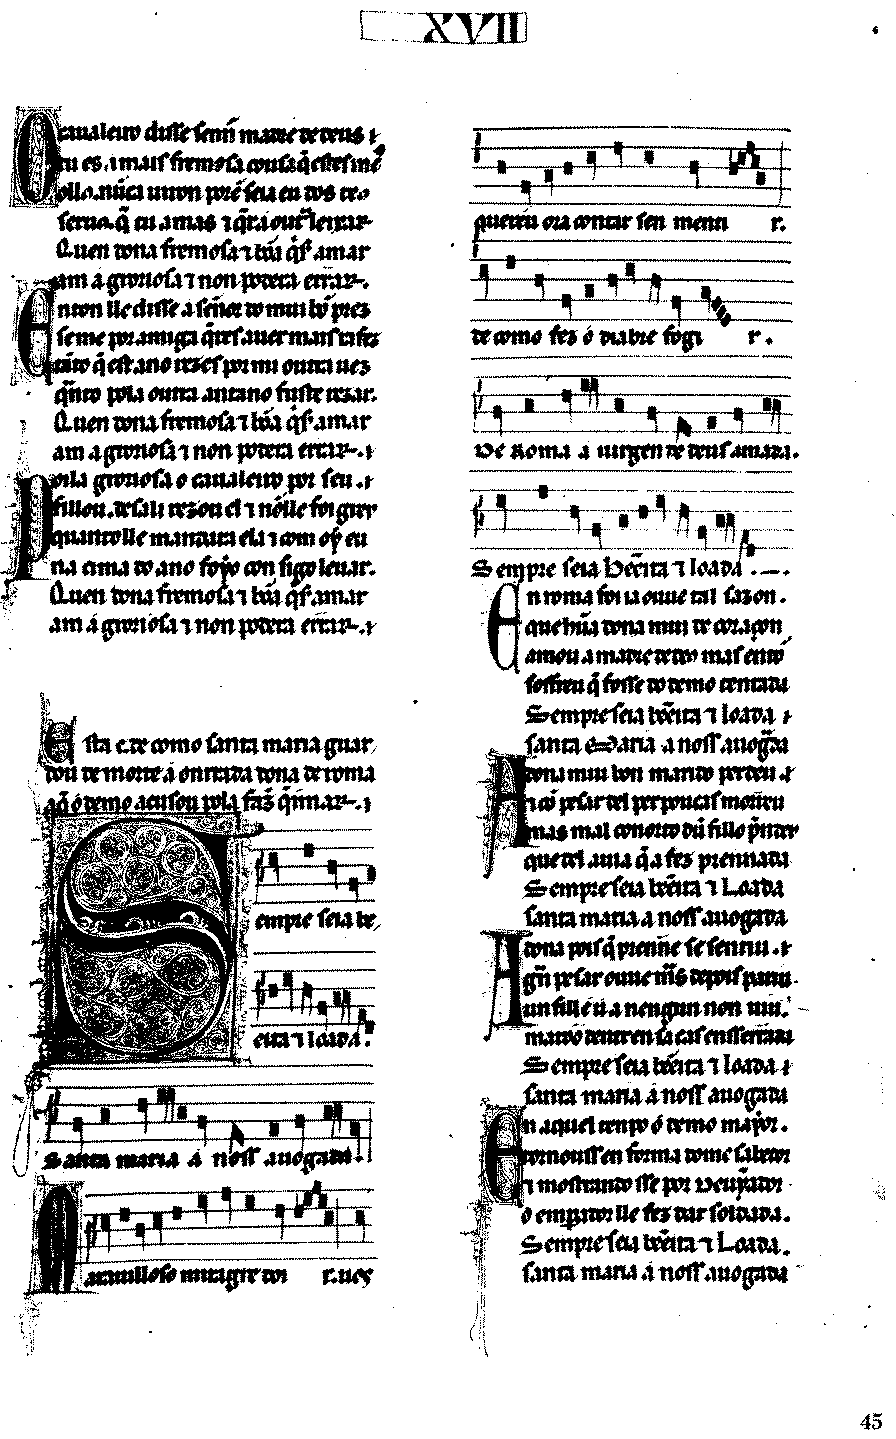 XVII
O caualeiro disse sennor madre de deus ⁊
tu es. a mais fremosa cousa q̃ estes me
ollos. nũca uiron poren seia eu dos teo
seruos. q̃ tu amas ⁊ q̃ra outr̃ leixar
Quen dona fremosa ⁊ bõa q̃s̃ amar
am a groriosa ⁊ non podera errar.
Enton lle disse a sennor do mui bõ prez
se me por amiga q̃res auer mais rafez
tãto q̃ est ano rezes por mi outra uez
q̃nto pola outra antano fuste rezar.
Quen dona fremosa ⁊ bõa q̃s̃ amar
am a groriosa ⁊ non podera errar. ⁊
Poila groriosa o caualeiro por seu
fillou. desali rezou el ⁊ nõ lle foi greu
quanto lle mandara ela ⁊ com oý eu
na cima do ano foyo con sigo leuar.
Quen dona fremosa ⁊ bõa q̃s̃ amar
am á groriosa ⁊ non podera errar. ⁊
Esta c. de como santa maria guar
dou de morte á onrrada dona de roma
a q̃ o demo acusou pola faz̃ q̃imar. ⁊
Sempre seia be
eita ⁊ loada.
Santa maria á noss auogada.
Marauilloso miragre doi r. ues
quereu ora contar sen menti r.
de como fez o diabre fogi r.
De Roma a uirgen de deus amada.
Sempre seia bẽeita ⁊ loada
En roma foi ia ouue tal sazon.
que hũa dona mui de coraçon
amou a madre de deo mas entõ
soffreu q̃ fosse do demo tentada
Sempre seia bẽeita ⁊ loada ⁊
santa Maria a noss auogãda
A dona mui bon marido perdeu. ⁊
⁊ cõ pesar del per poucas morreu
mas mal conorto dũ fillo p̃nder
que del auia q̃ a fez prennada
Sempre seia bẽeita ⁊ Loada
santa maria a noss auogada
A dona pois q̃ prenne se sentiu. ⁊
grã pesar ouue m̃s depois pariu
un fill e u a nengun non uiu.
matóo dentr en sa cas enserrada
Sempre seia bẽeita ⁊ loada ⁊
santa maria á noss auogada
En aquel tenpo ó demo mayor.
tornouss en forma dome sabedor
⁊ mostrando sse por deuỹador
o emperador lle fez dar soldada.
Sempre seia bẽeita ⁊ Loada.
santa maria á noss auogada
45